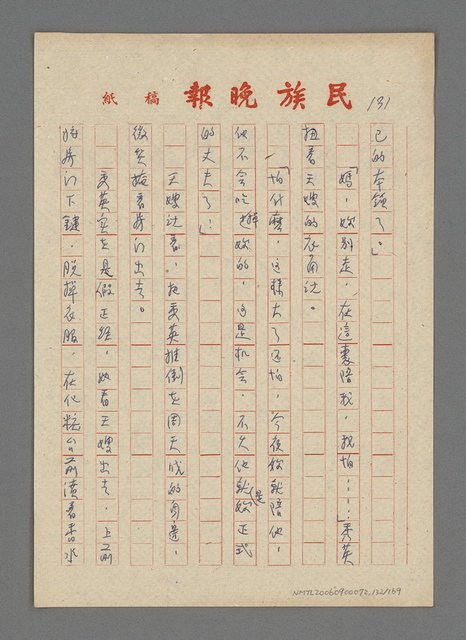 民族晚報 稿紙
131
己的本領了。」
「媽，妳別走，在這裏陪我，我怕……」美英
扭着王嫂的衣角說。
「怕什麼，這樣大了还怕，今夜妳就陪他，
他不会吃掉妳的，這是机会，不久他就是妳正式
的丈夫了！」
王嫂說着，把美英推倒在周天成的身邊，
微笑掩着房门出去。
美英实在是假正經，她看王嫂出去，上前
將房门下鍵，脱掉衣服，在化粧台前漬着香水
NMTL20060900072_132/169